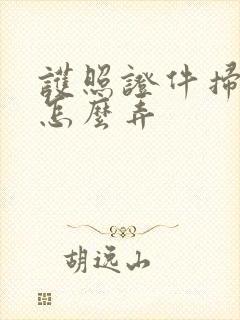 護照證件掃
怎麼弄
胡逸山